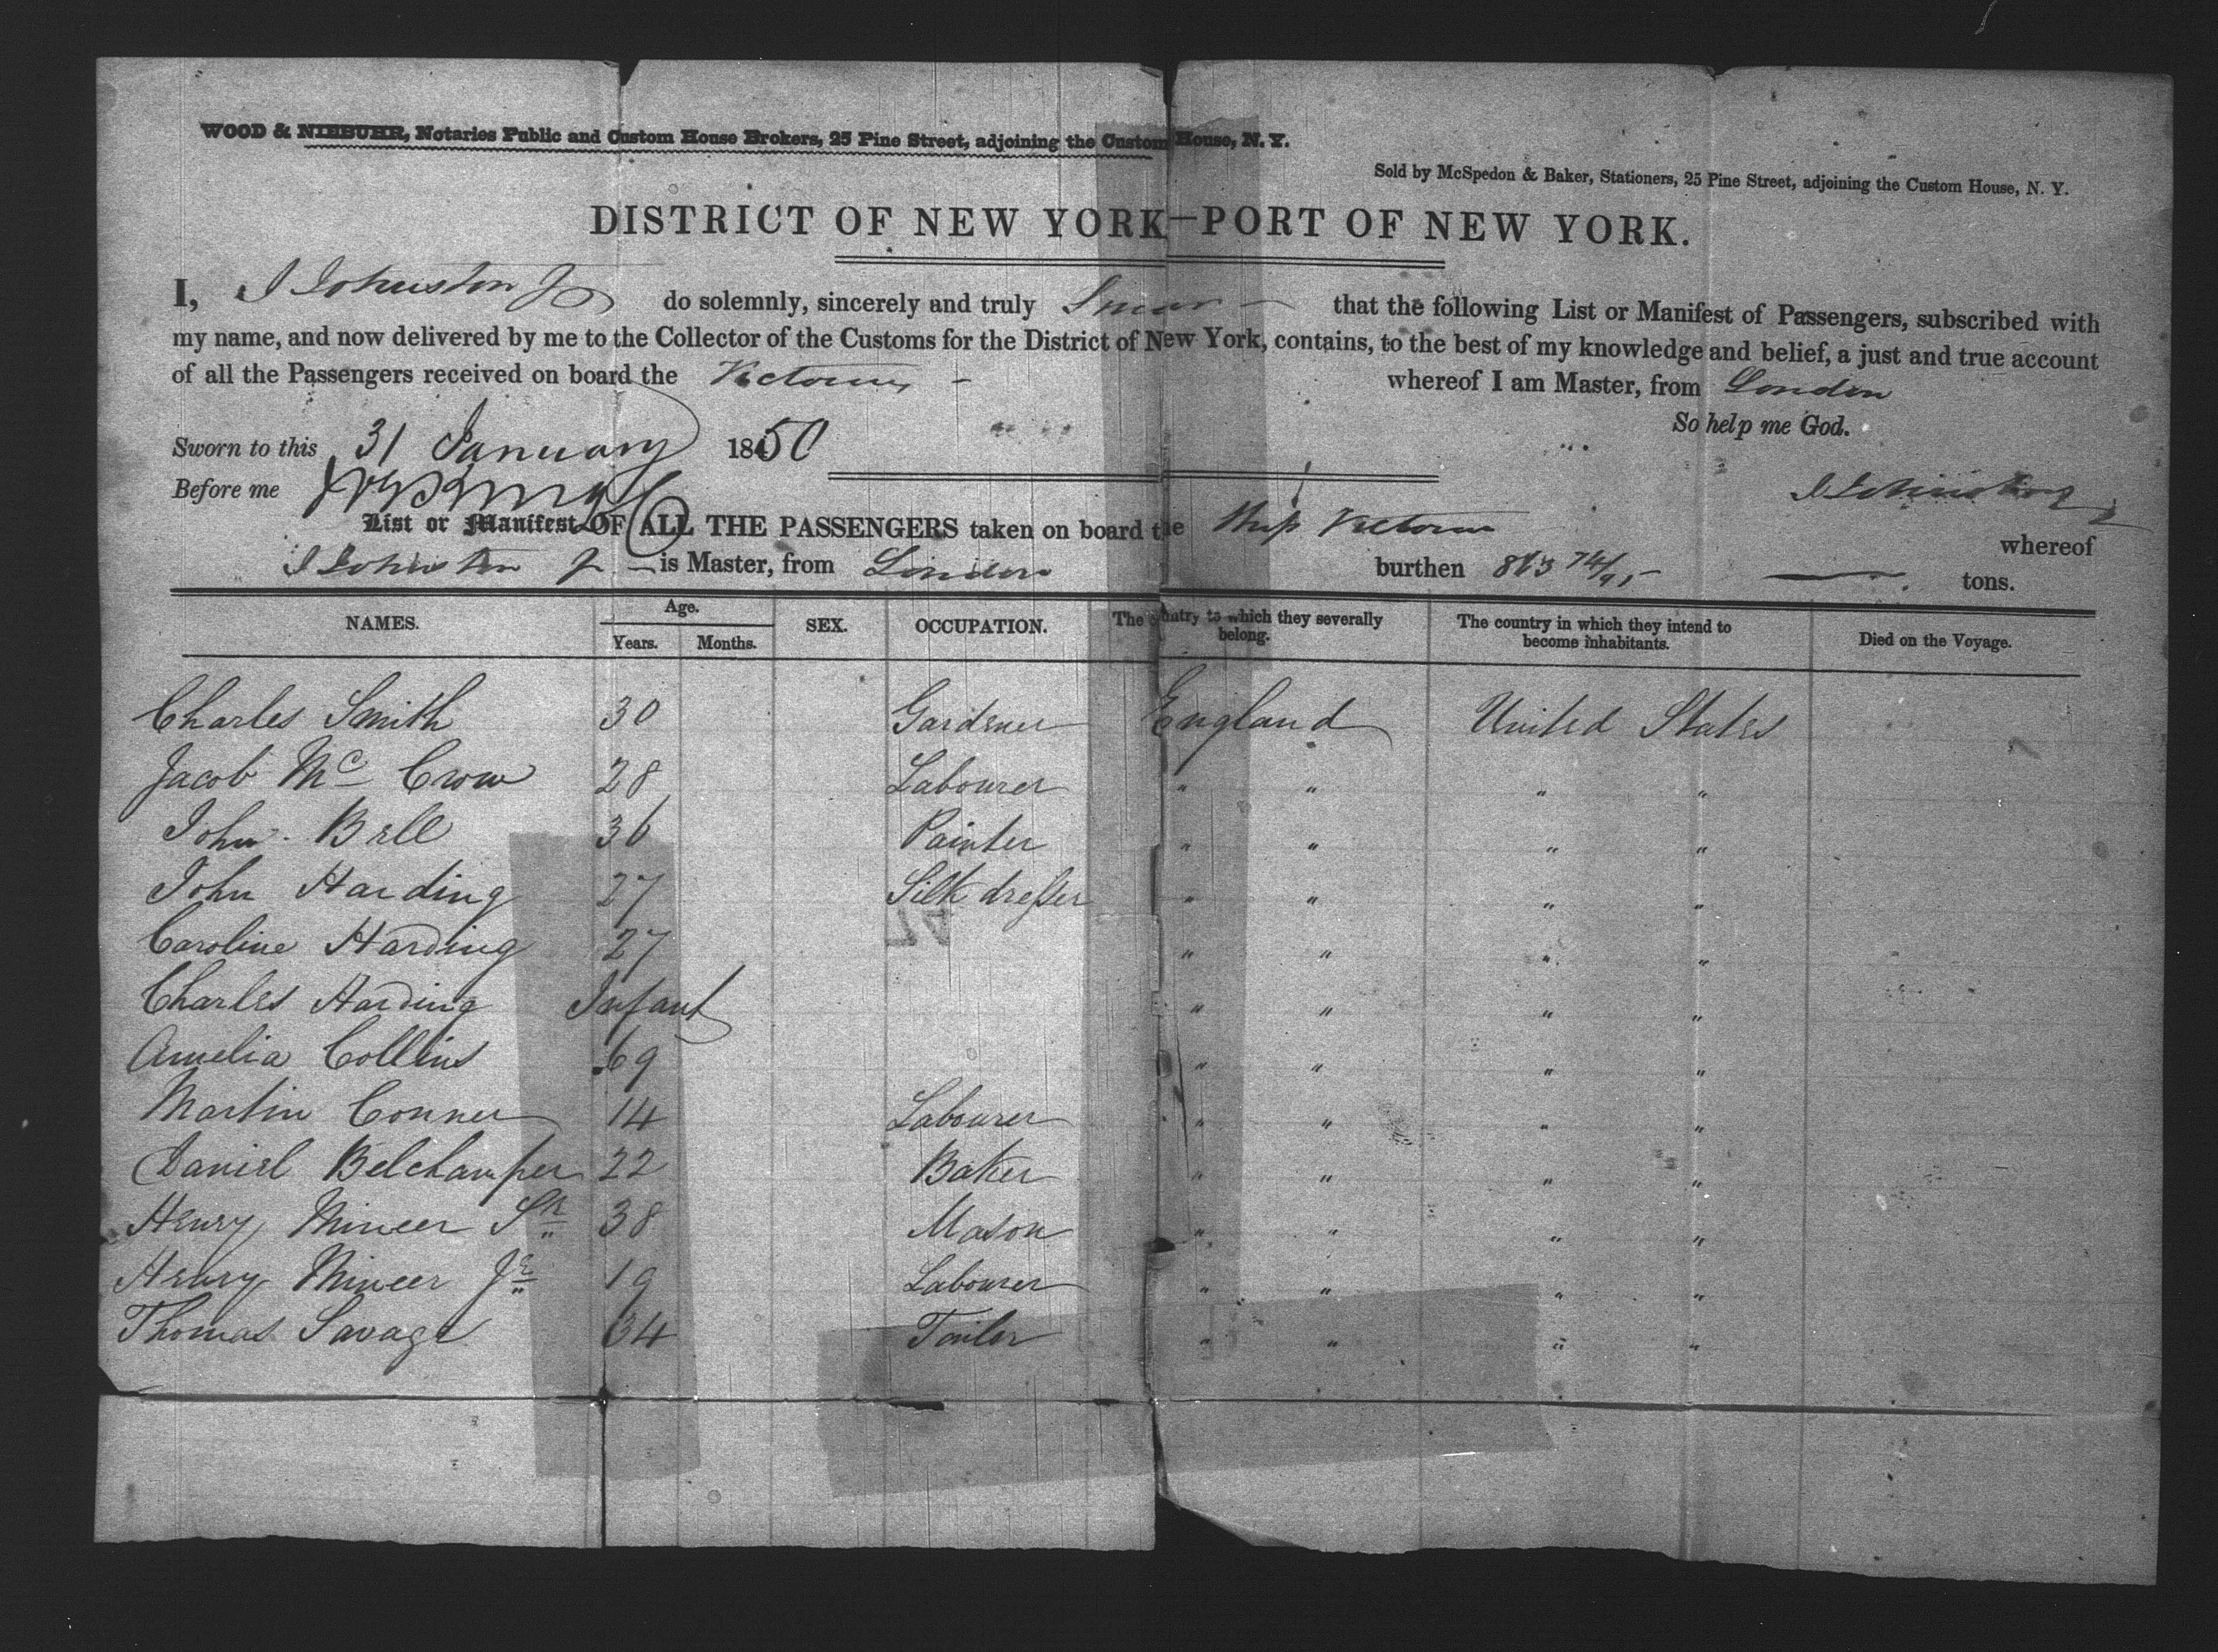 WOOD & NIEBUHR, Notaries Public and Custom House Brokers, 25 Pine Street, adjoining the Custom House, N. Y.
Sold by McSpedon & Baker, Stationers, 25 Pine Street, adjoining the Custom House, N. Y.
DISTRICT OF NEW YORK—PORT OF NEW YORK.
I, J Johnston Jr do solemnly, sincerely and truly Swear that the following List or Manifest of Passengers, subscribed with
my name, and now delivered by me to the Collector of the Customs for the District of New York, contains, to the best of my knowledge and belief, a just and true account
of all the Passengers received on board the Victoria whereof I am Master, from London
So help me God.
Sworn to this 31 January 1850
Before me
J Johnston Jr
List or Manifest OF ALL THE PASSENGERS taken on board the Ship Victoria whereof
J Johnston Jr is Master, from London burthen 863 74/95 tons.
NAMES. Age. Years. Months. SEX. OCCUPATION. The country to which they severally belong. The country in which they intend to become inhabitants. Died on the Voyage.
Charles Smith 30 Gardener England United States
Jacob Mc Crow 28 Labourer " " " "
John Bell 36 Painter " " " "
John Harding 27 Silk dresser " " " "
Caroline Harding 27 " " " "
Charles Harding Infant " " " "
Amelia Collins 69 " " " "
Martin Conner 14 Labourer " " " "
Daniel Belchamper 22 Baker " " " "
Henry Mineer Sr 38 Mason " " " "
Henry Mineer Jr 19 Labourer " " " "
Thomas Savage 34 Tailor " " " "